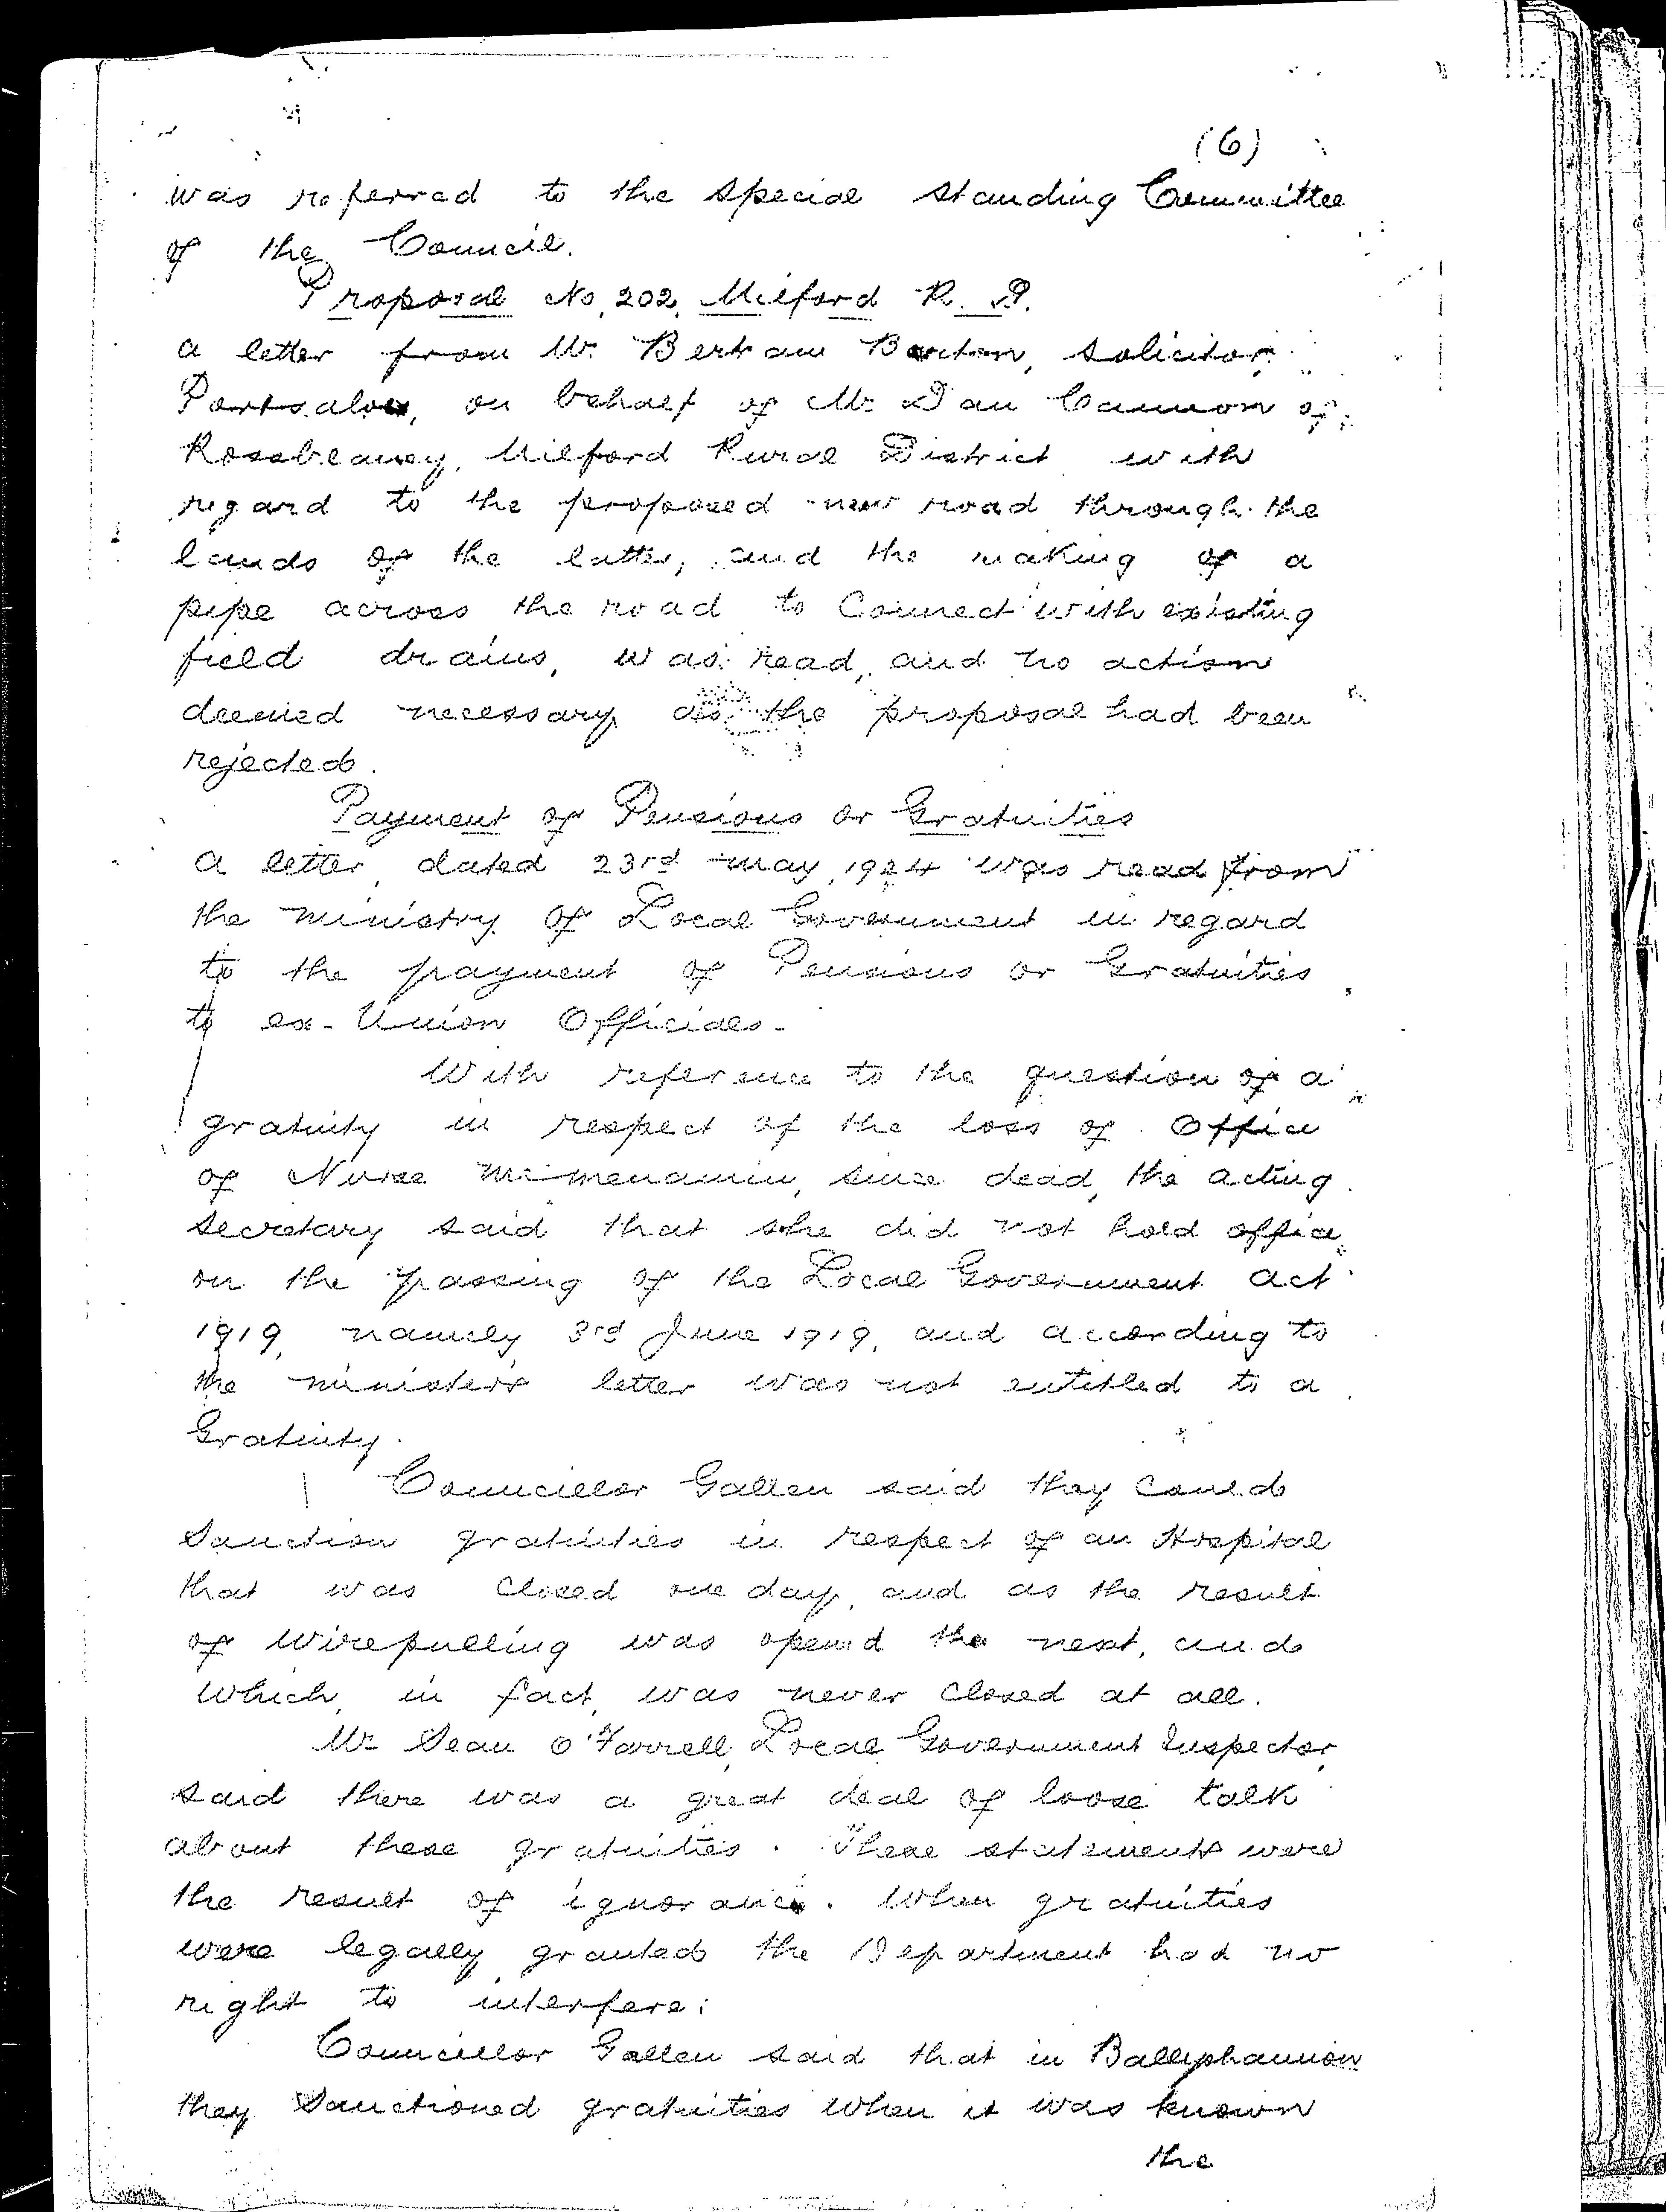 (6)
was referred to the special standing Committee
of the Council.
Proposal No. 202, Milford R. D.
A letter from Mr. Bertram Barton, solicitor,
Portsalon, on behalf of Mr Dan Cannon of
Rossbeaney, Milford Rural District with
regard to the proposed new road through the
lands of the latter, and the making of a
pipe across the road to Connect with existing
field drains, was read, and no action
deemed necessary as the proposal had been
rejected.
Payment of Pensions or Gratuities
A letter, dated 23rd May, 1924 was read from
the ministry of Local Government in regard
to the payment of Pensions or Gratuities
to ex-Union Officials-
With reference to the question of a
gratuity in respect of the loss of Office
of Nurse McMenamin, since dead, the acting
secretary said that she did not hold office
on the passing of the Local Government Act
1919, namely 3rd June 1919, and according to
the ministers letter was not entitled to a
Gratuity.
Councillor Gallen said they could
Sanction gratuities in respect of an Hospital
that was Closed one day, and as the result
of wirepulling was opened the next, and
which, in fact, was never closed at all.
Mr Sean O'Farrell, Local Government Inspector,
said there was a great deal of loose talk
about these gratuities. These statements were
the result of ignorance. When gratuities
were legally granted the Department had no
right to interfere.
Councillor Gallen said that in Ballyshannon
they Sanctioned gratuities when it was known
the